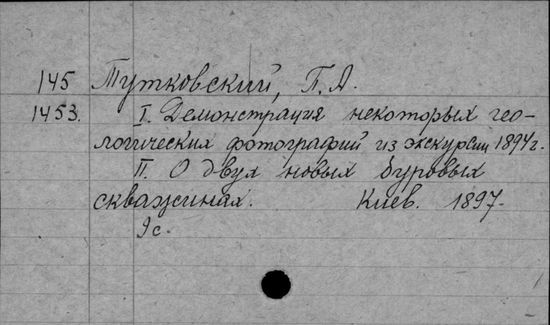 145 Тутковский, П. А.
1453. I. Демонстрация некоторых гео-
логических фотографий из экскурсии 1894 г.
II. О двух новых буровых
скважинах. Киев. 1897.
9 с.